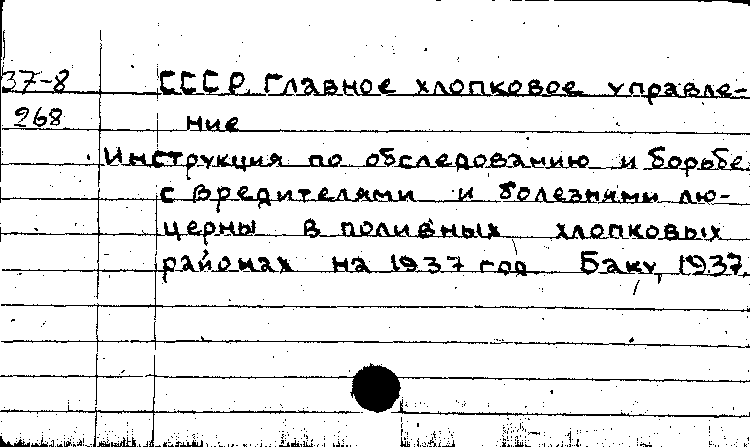 37-8 СССР. Главное хлопковое управле-
268 ние
Инструкция по обследованию и борьбе
с вредителями и болезнями лю-
церны в поливных хлопковых
районах на 1937 год. Баку, 1937.